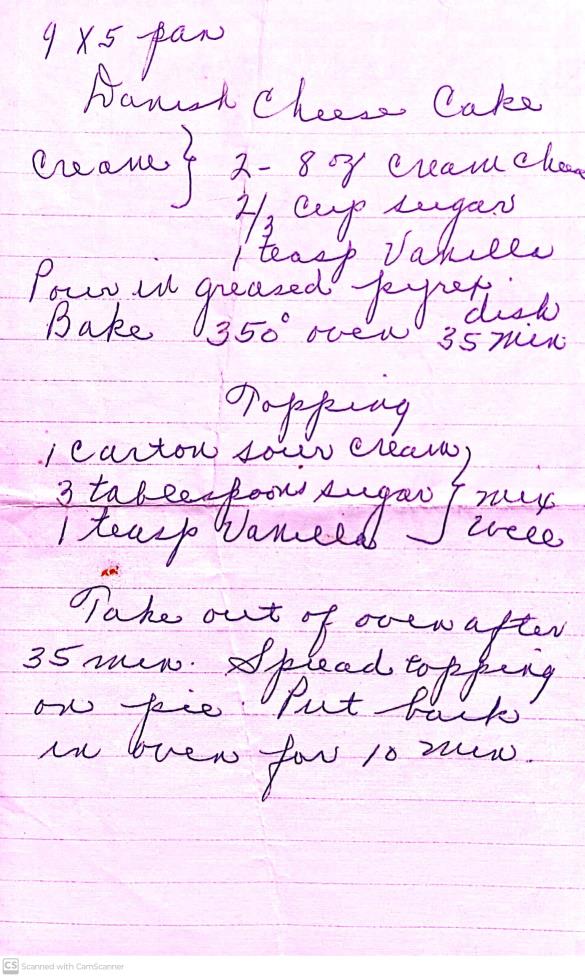 9 X 5 pan
Danish Cheese Cake
Cream } 2 - 8 oz cream chees
2/3 cup sugar
1 teasp Vanilla
Pour in greased pyrex dish
Bake 350° oven 35 min
Topping
1 carton sour cream
3 tablespoons sugar } mix
1 teasp Vanilla well
Take out of oven after
35 min. Spread topping
on pie. Put back
in oven for 10 min.
CS Scanned with CamScanner